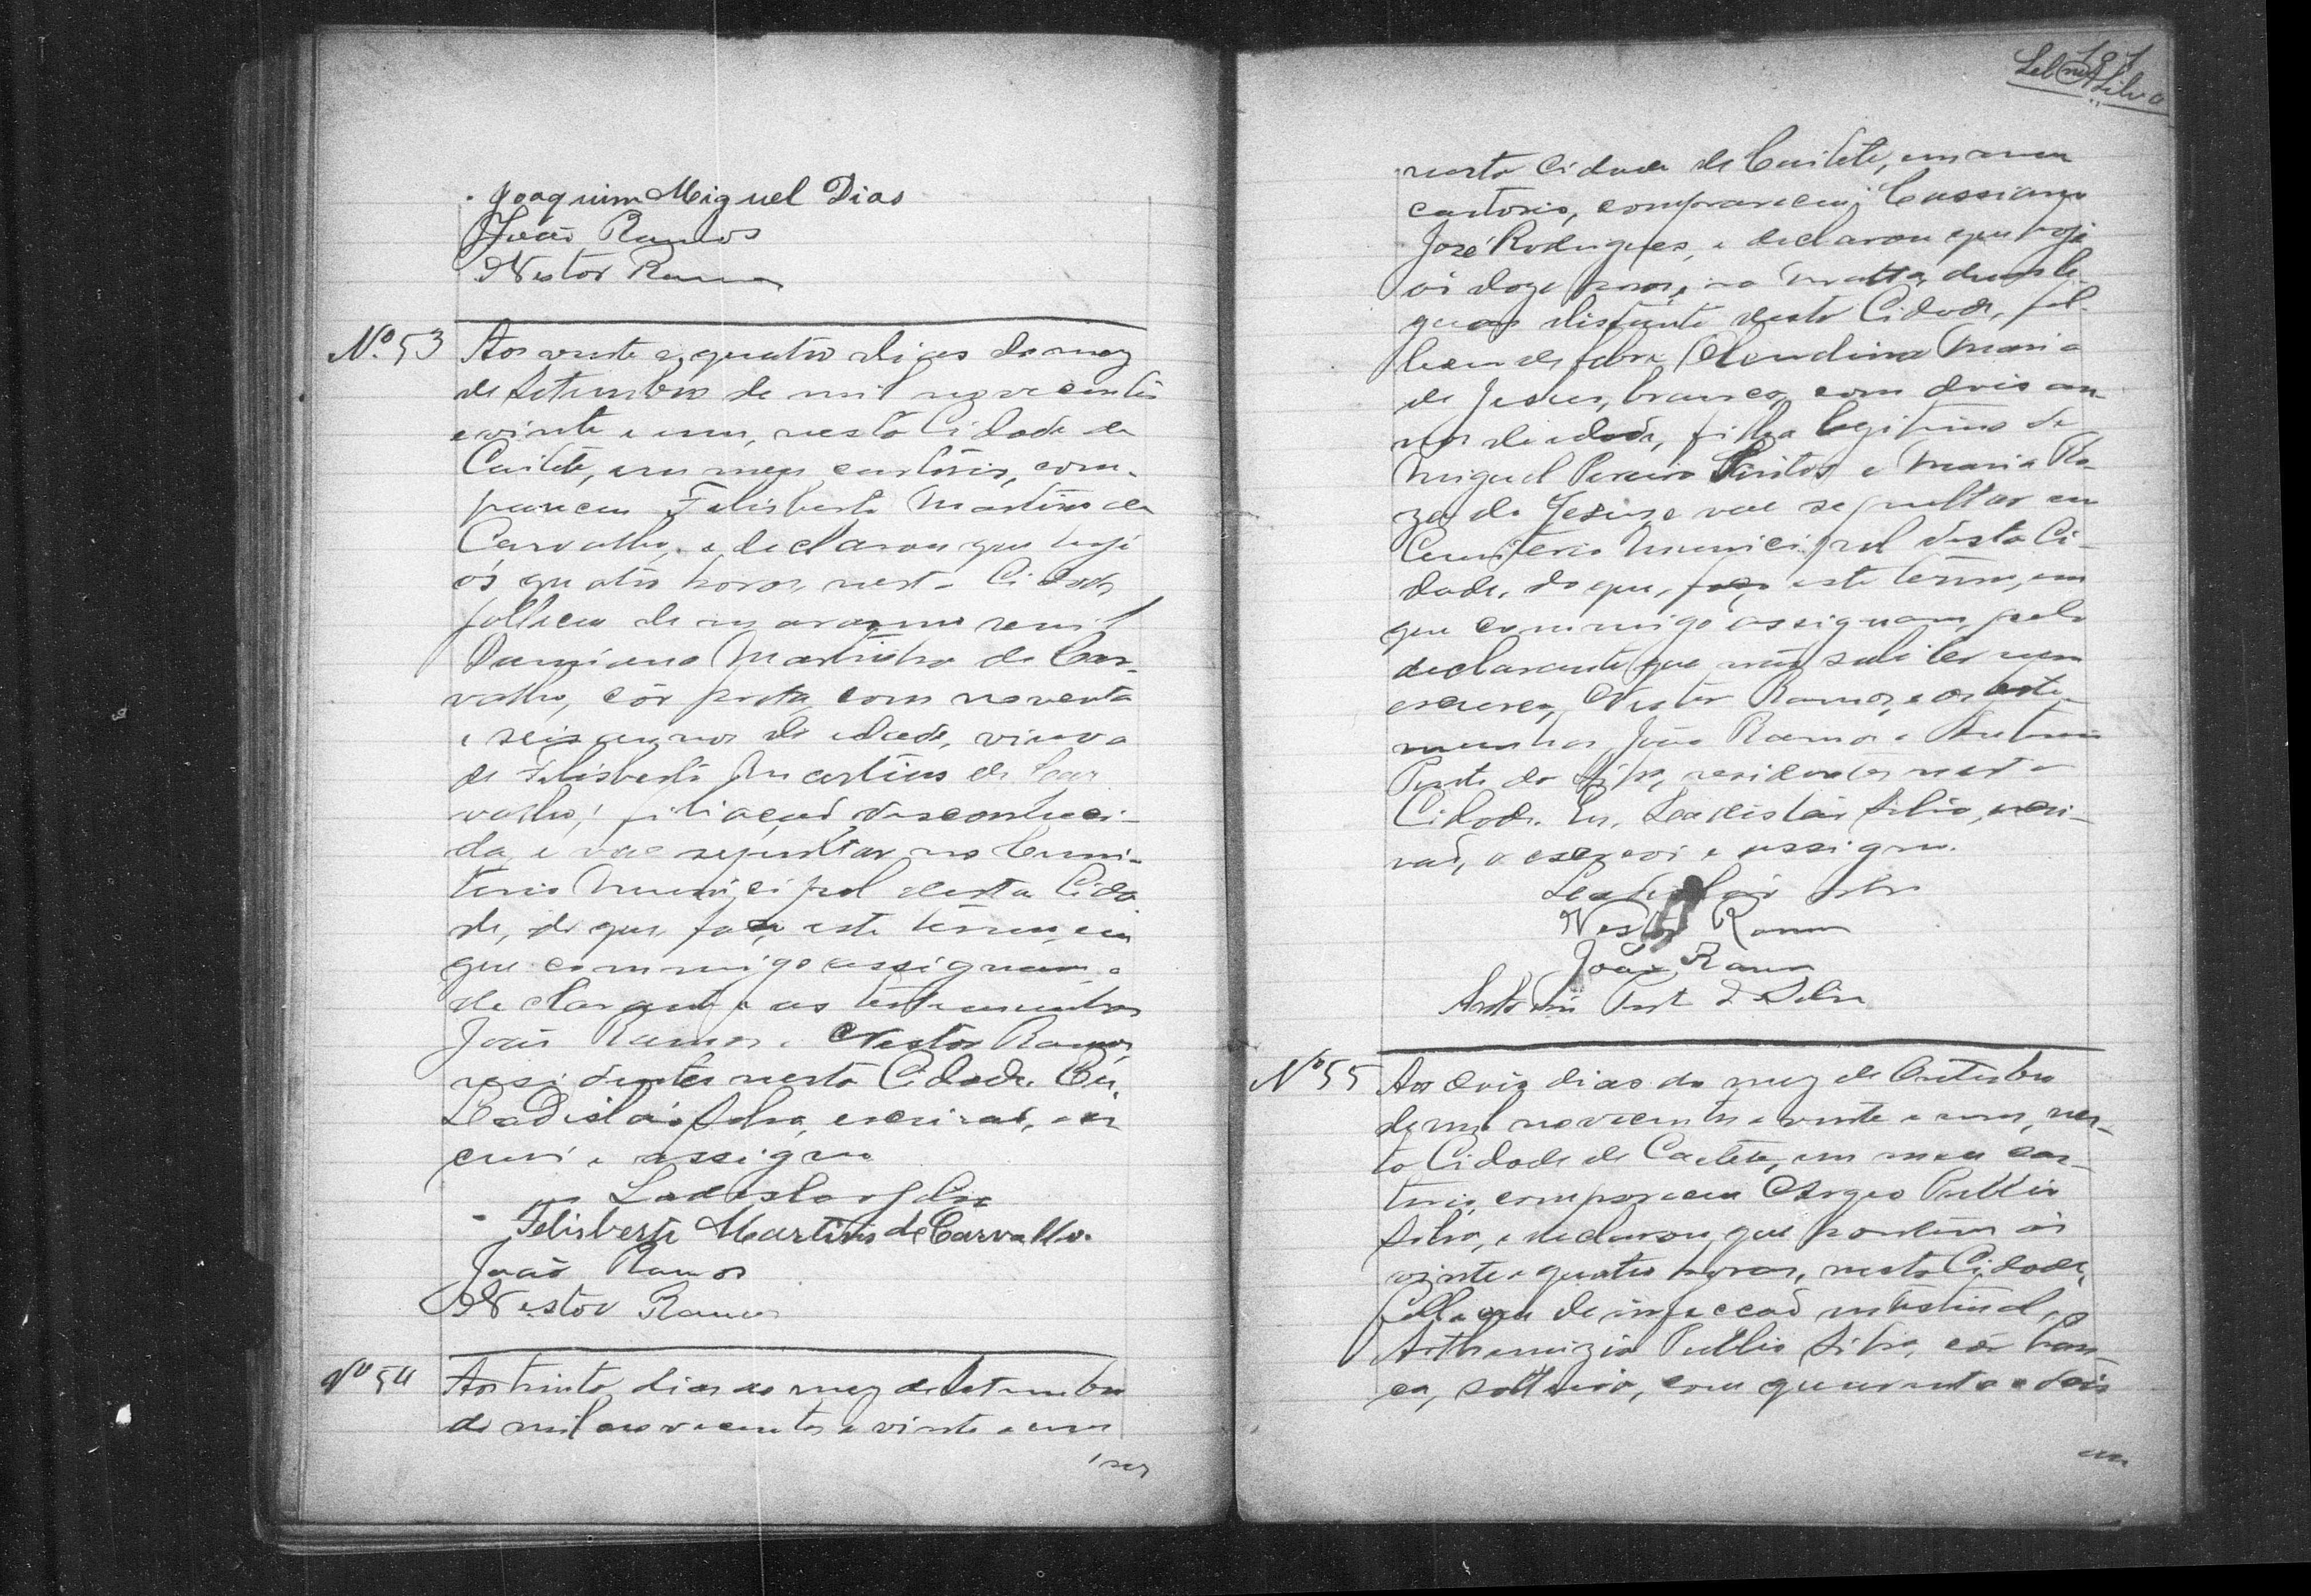 Joaquim Miguel Dias
João Ramos
Nestor Ramos
Nº 53 Aos vinte e quatro dias do mez
de Setembro de mil novecentos
e vinte e um, nesta Cidade de
Caiteté, em meu cartorio, com-
pareceu Felisberto Martins de
Carvalho, e declarou que hoje
ás quatro horas, nesta Cidade
falleceu de marasmo senil
Damiana Martins de Car-
valho, côr preta, com noventa
e seis annos de edade, viuva
de Felisberto Martins de Car
valho, filiação desconheci-
da, e vae sepultar no Cemi-
terio Municipal desta Cida
de, do que, faço este termo, em
que commigo assignam o
declarante e as testemunhas
João Ramos e Nestor Ramos,
residentes nesta Cidade. Eu,
Ladisláo Silva, escrivão, o es
crevi e assigno
Ladislao Silva
Felisberto Martins de Carvalho.
João Ramos
Nestor Ramos
Nº 54 Aos trinta dias do mez de Setembro
de mil novecentos e vinte e um
nes
181
Silva
nesta Cidade de Caiteté, em meu
cartorio, compareceu Cassiano
José Rodrigues, e declarou que hoje
ás doze horas, na Matta, duas le-
guas distante desta Cidade, fal-
leceu de febre Claudina Maria
de Jesus, branca, com dois an-
nos de edade, filha legitima de
Miguel Pereira Santos e Maria Ro-
za de Jesus, e vae sepultar em
Cemiterio Municipal desta Ci-
dade, do que, faço este termo, em
que commigo assignam, pelo
declarante que não sabe ler nem
escrever, Nestor Ramos, e as teste-
munhas, João Ramos e Antonio
da Silva, residentes nesta
Cidade. Eu, Ladisláo Silva, escri-
vão, o escrevi e assigno.
Ladisláo Silva
Nestor Ramos
João Ramos
Antonio Silva
Nº 55 Aos dois dias do mez de Outubro
de mil novecentos e vinte e um, nes-
ta Cidade de Caeteté, em meu car-
torio, compareceu Argeo Publio
Silva, e declarou que hontem ás
vinte e quatro horas, nesta Cidade,
falleceu de infecção intestinal,
Arthemizia Publio Silva, côr bran-
ca, solteira, com quarenta e dois
an